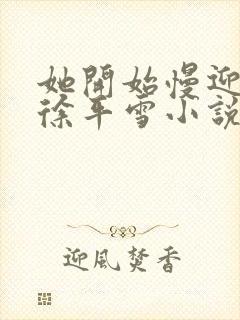 她開始慢迎
徐平雪小說
迎風焚香